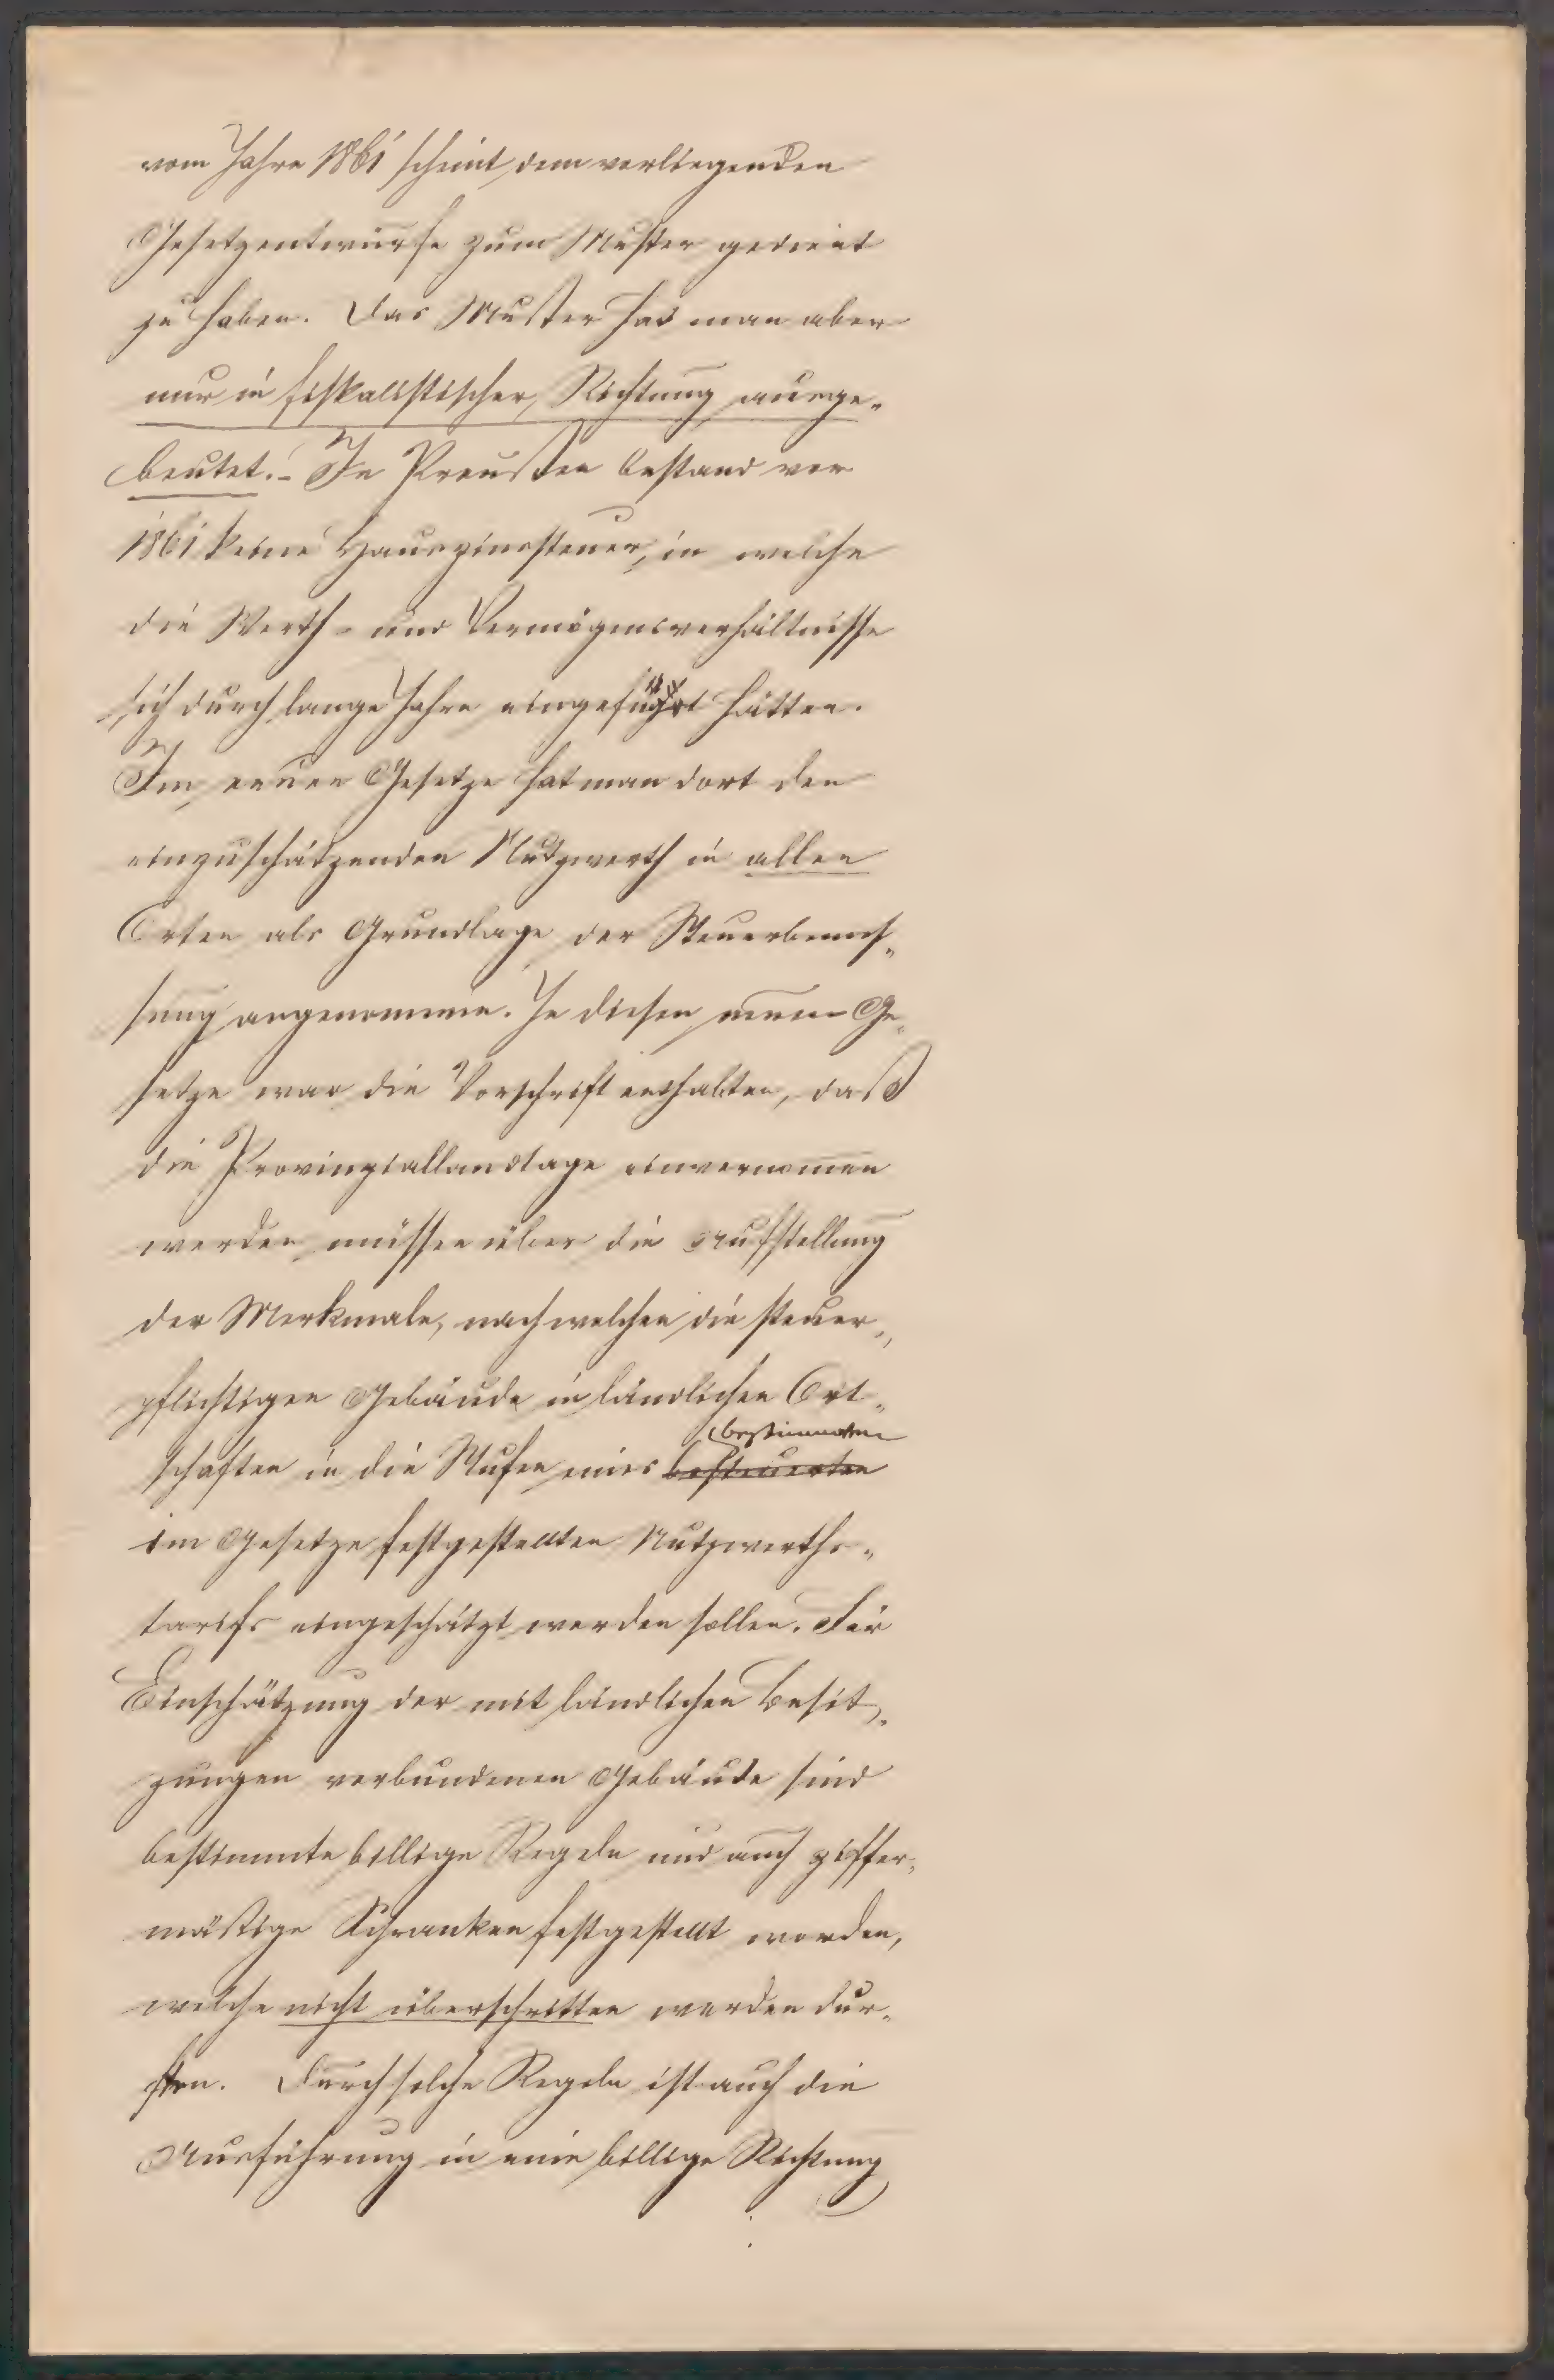 vom Jahre 1861 scheint dem vorliegenden
Gesetzentwurfe zum Muster gedient
zu haben. Das Muster hat man aber
nur in fiskalistischer Richtung ausge-
beutet. – In Preußen bestand vor
1861 keine Hauszinssteuer, in welche
die Werth- und Vermögensverhältnisse
sich durch lange Jahre eingeführt hätten.
Im neuen Gesetze hat man dort den
einzuschätzenden Nutzwerth in allen
Orten als Grundlage der Steuerbemes-
sung angenommen. In diesem neuen Ge-
setze war die Vorschrift enthalten, daß
die Provinziallandtage einvernomen
werden müssen über die Aufstellung
der Merkmale, nach welchen die steuer-
pflichtigen Gebäude in ländlichen Ort-
schaften in die Stufen eines besteuerten bestimmten
im Gesetze festgestellten Nutzwerths-
tarifs eingeschätzt werden sollen. Für
Einschätzung der mit ländlichen Besit-
zungen verbundenen Gebäude sind
bestimmte billige Regeln und auch ziffer-
mäßige Schranken festgestellt worden,
welche nicht überschritten werden dur-
ften. Durch solche Regeln ist auch die
Ausführung in eine billige Richtung